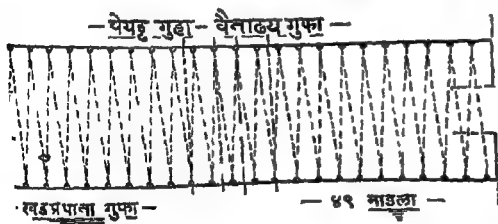 — पेयट्ट गुहा - वैताढ्य गुफा —
खंडप्रपाता गुफा —
— ४९ मांडला —